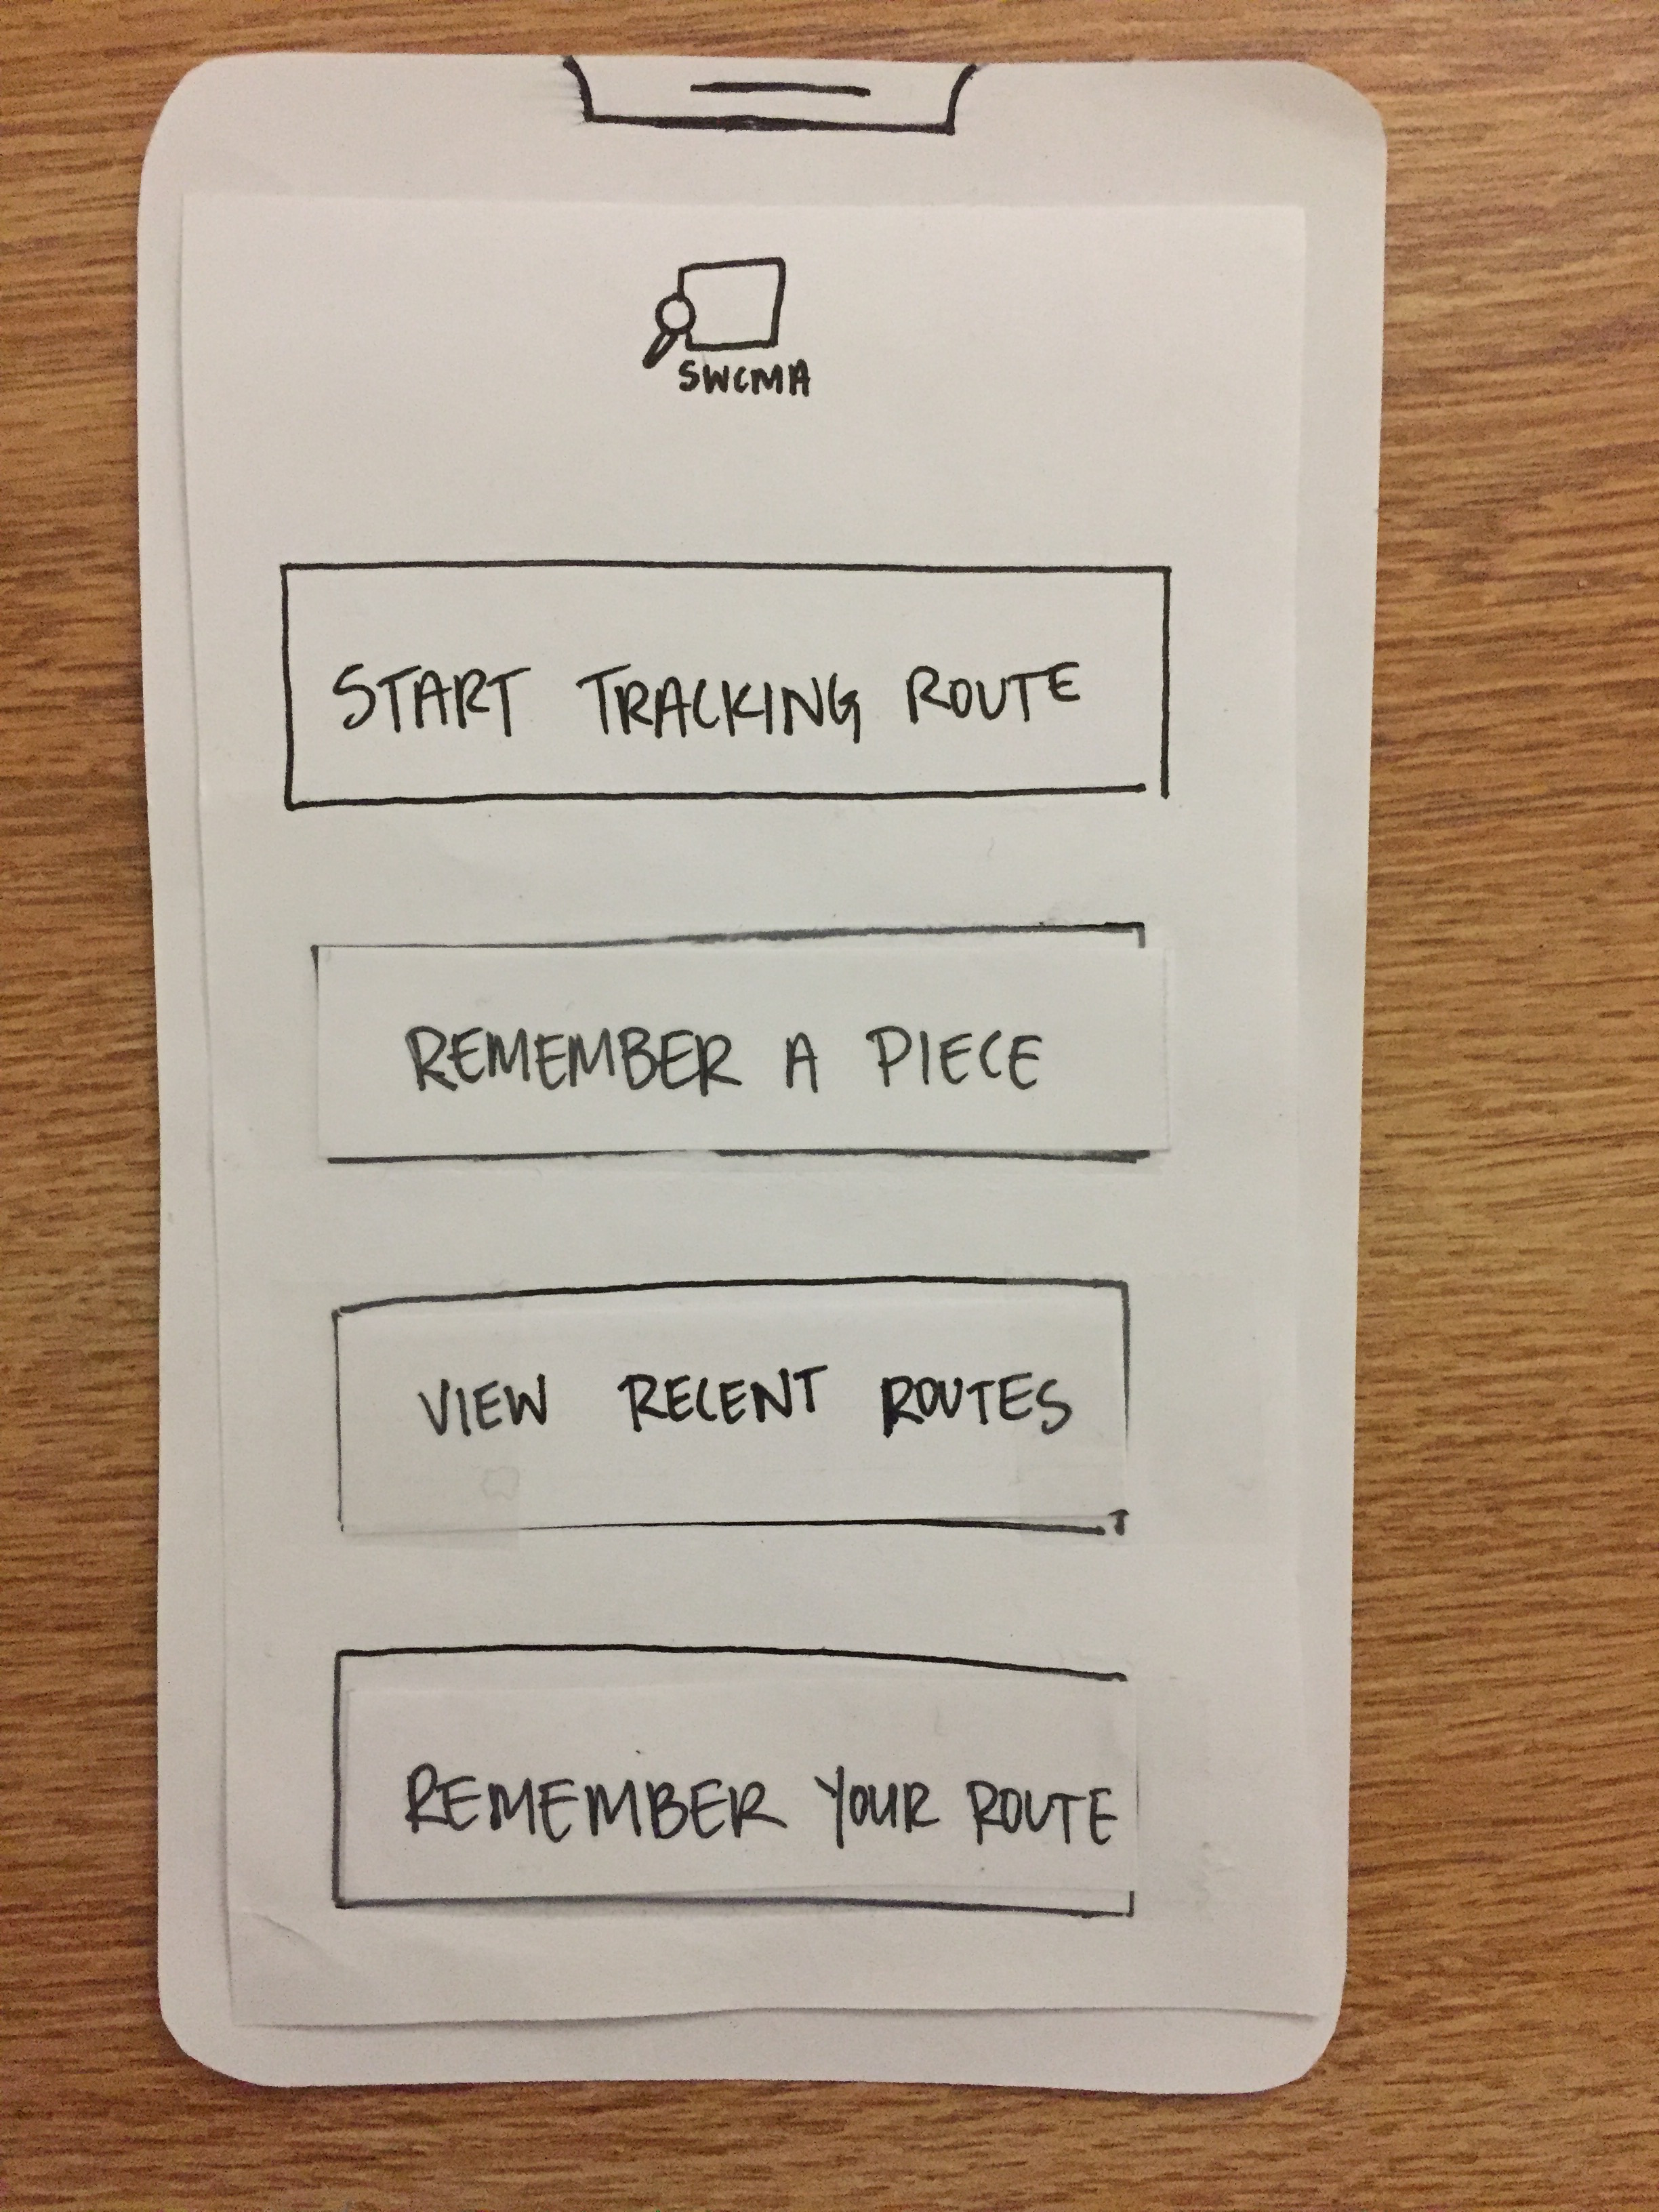 SWCMA
START TRACKING ROUTE
REMEMBER A PIECE
VIEW RECENT ROUTES
REMEMBER YOUR ROUTE